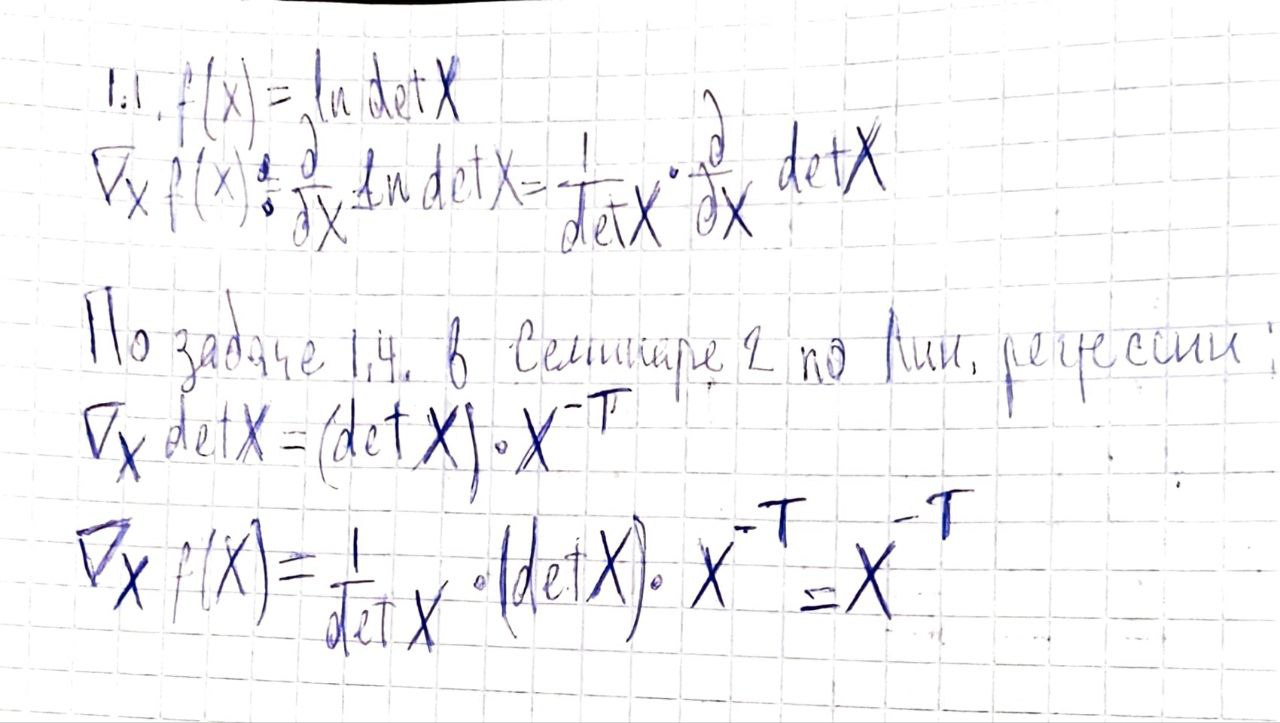 1.1. f(X) = ln det X
∇_X f(X) = ∂/∂X ln det X = 1/det X · ∂/∂X det X
По задаче 1.4. в Семинаре 2 по лин. регрессии:
∇_X det X = (det X) · X^{-T}
∇_X f(X) = 1/det X · (det X) · X^{-T} = X^{-T}